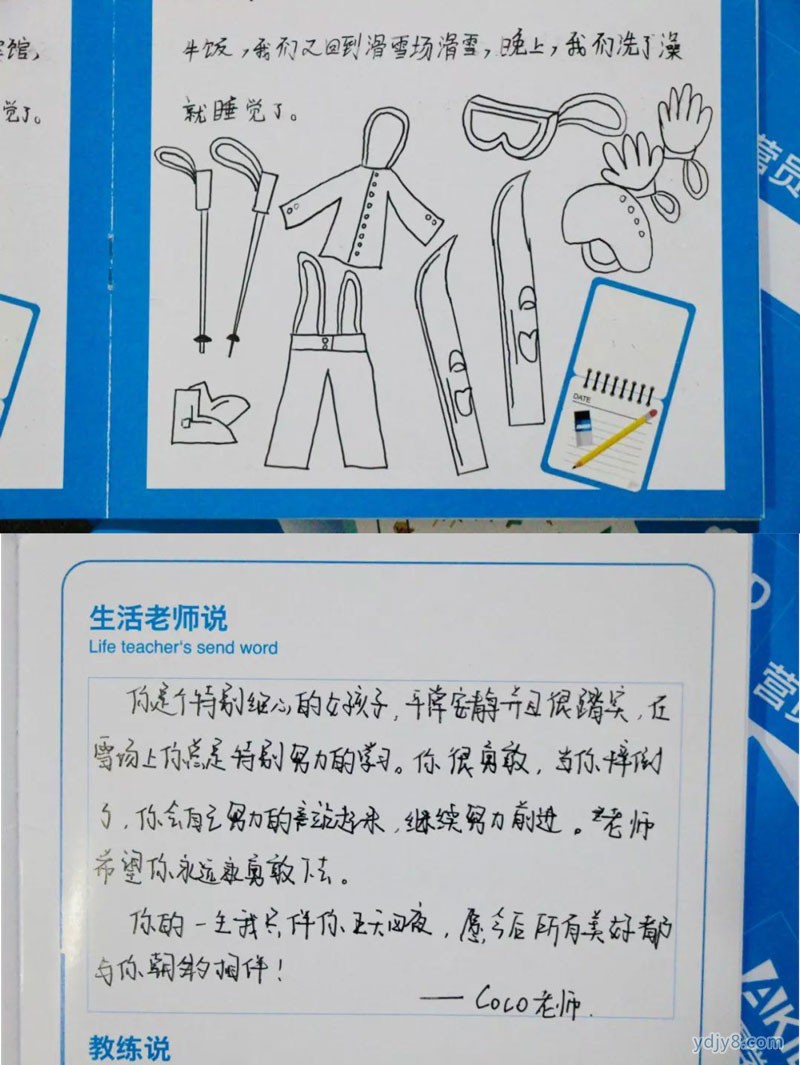 宾馆,
觉了。
牛饭,我们又回到滑雪场滑雪,晚上,我们洗了澡
就睡觉了。
DATE
营员
生活老师说
Life teacher's send word
你是个特别细心的女孩子,平常安静并且很踏实,在
雪场上你总是特别努力的学习。你很勇敢,当你摔倒
了,你会自己努力的站起来,继续努力前进。老师
希望你永远勇敢下去。
你的一生我只伴你五天四夜,愿今后所有美好都
与你朝夕相伴!
——COCO老师.
教练说
营员
AKI
ydjy8.com